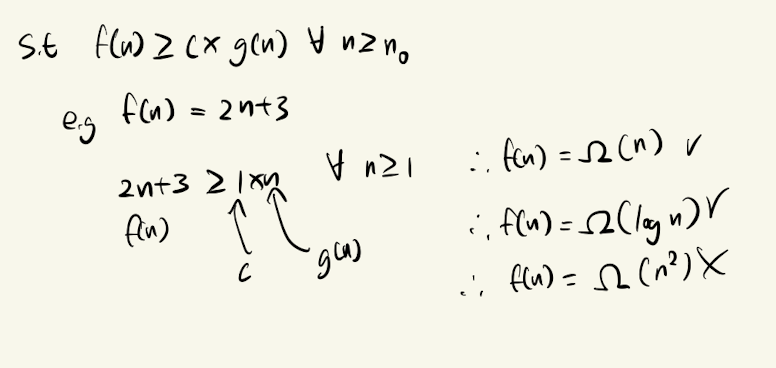 s.t f(n) ≥ c × g(n) ∀ n ≥ n₀
e.g f(n) = 2n+3
2n+3 ≥ 1×n ∀ n ≥ 1 ∴ f(n) = Ω(n) ✓
f(n)
c
g(n)
∴ f(n) = Ω(log n) ✓
∴ f(n) = Ω(n²) ✗